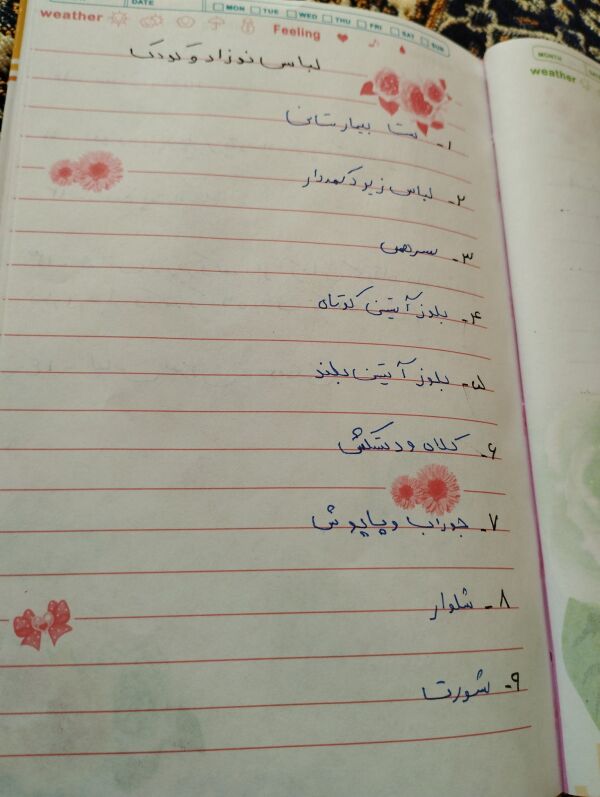 DATE
MON TUE WED THU FRI SAT SUN
weather Feeling
MONTH
weather
لباس نوزاد و کودک
۱- ست بیمارستانی
۲- لباس زیر دکمه‌دار
۳- سرهمی
۴- بلوز آستین کوتاه
۵- بلوز آستین بلند
۶- کلاه و دستکش
۷- جوراب و پاپوش
۸- شلوار
۹- شورت